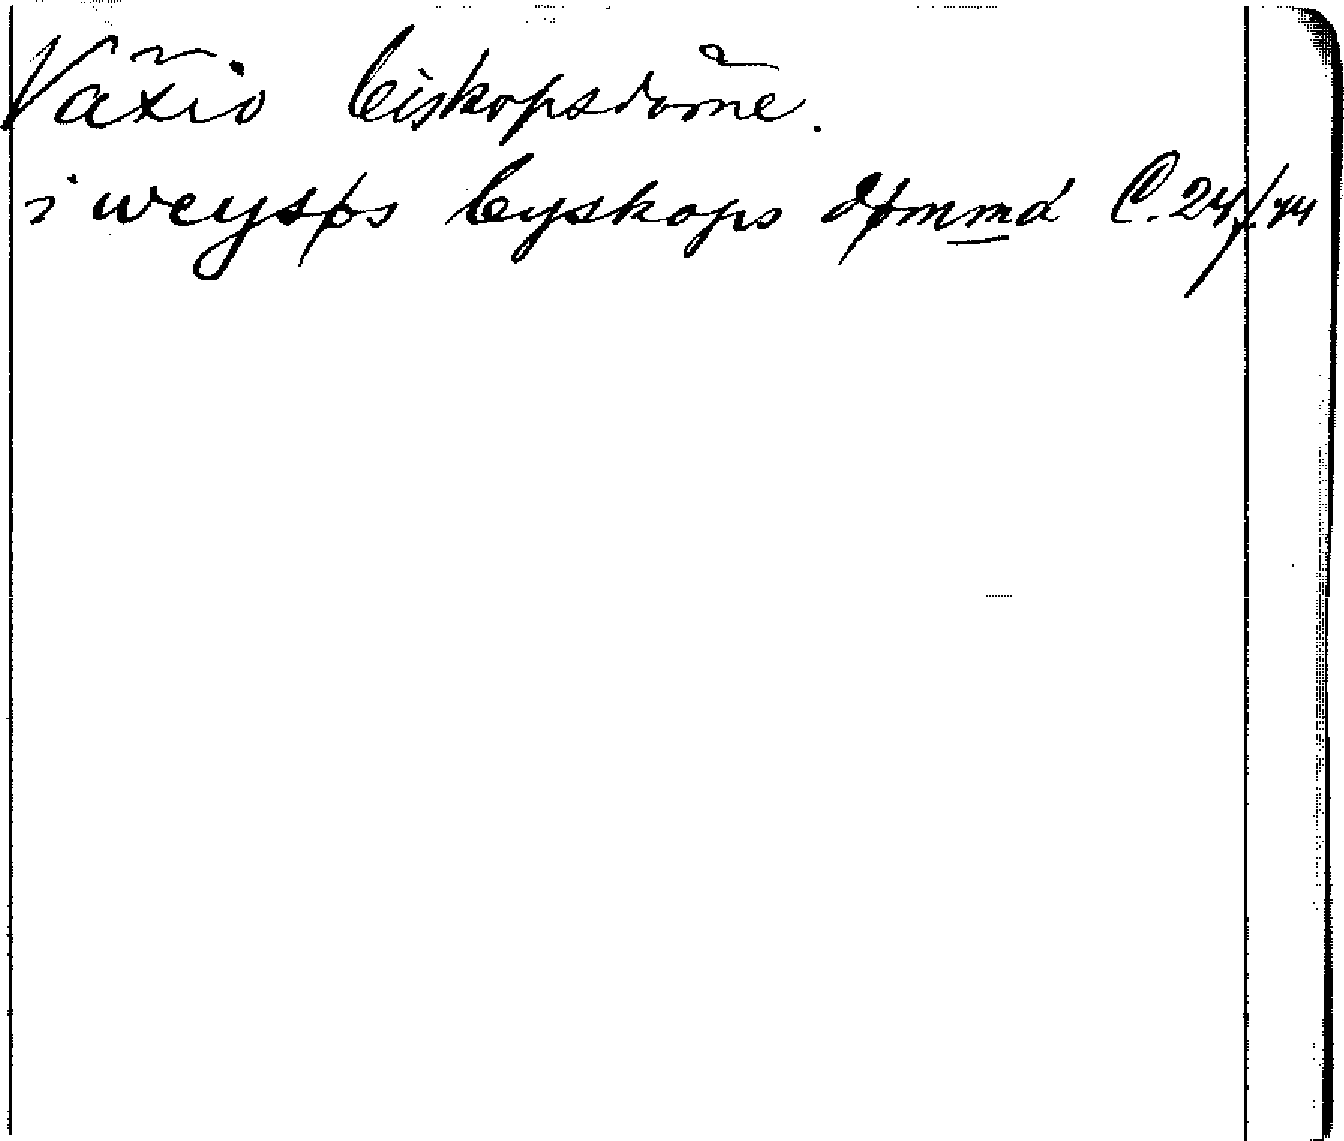 Växiö biskopsdöme.
i weysøs byskops dømmä C. 24/.44